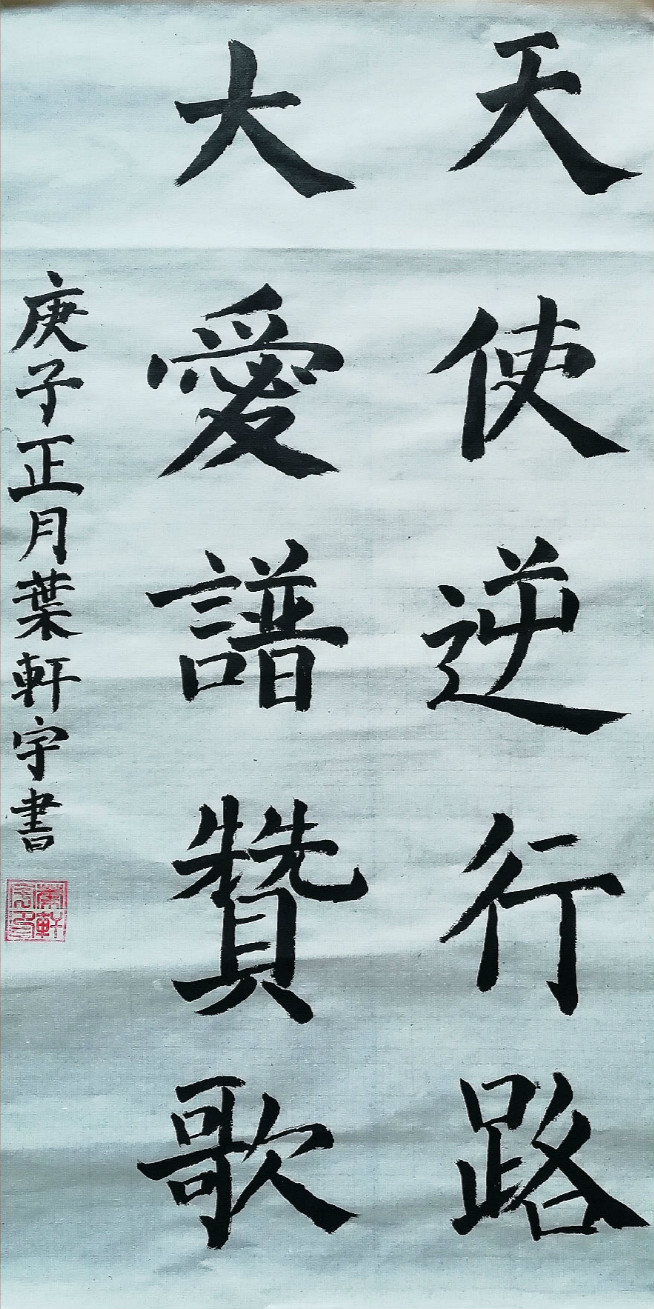 天使逆行路
大愛譜贊歌
庚子正月葉軒宇書